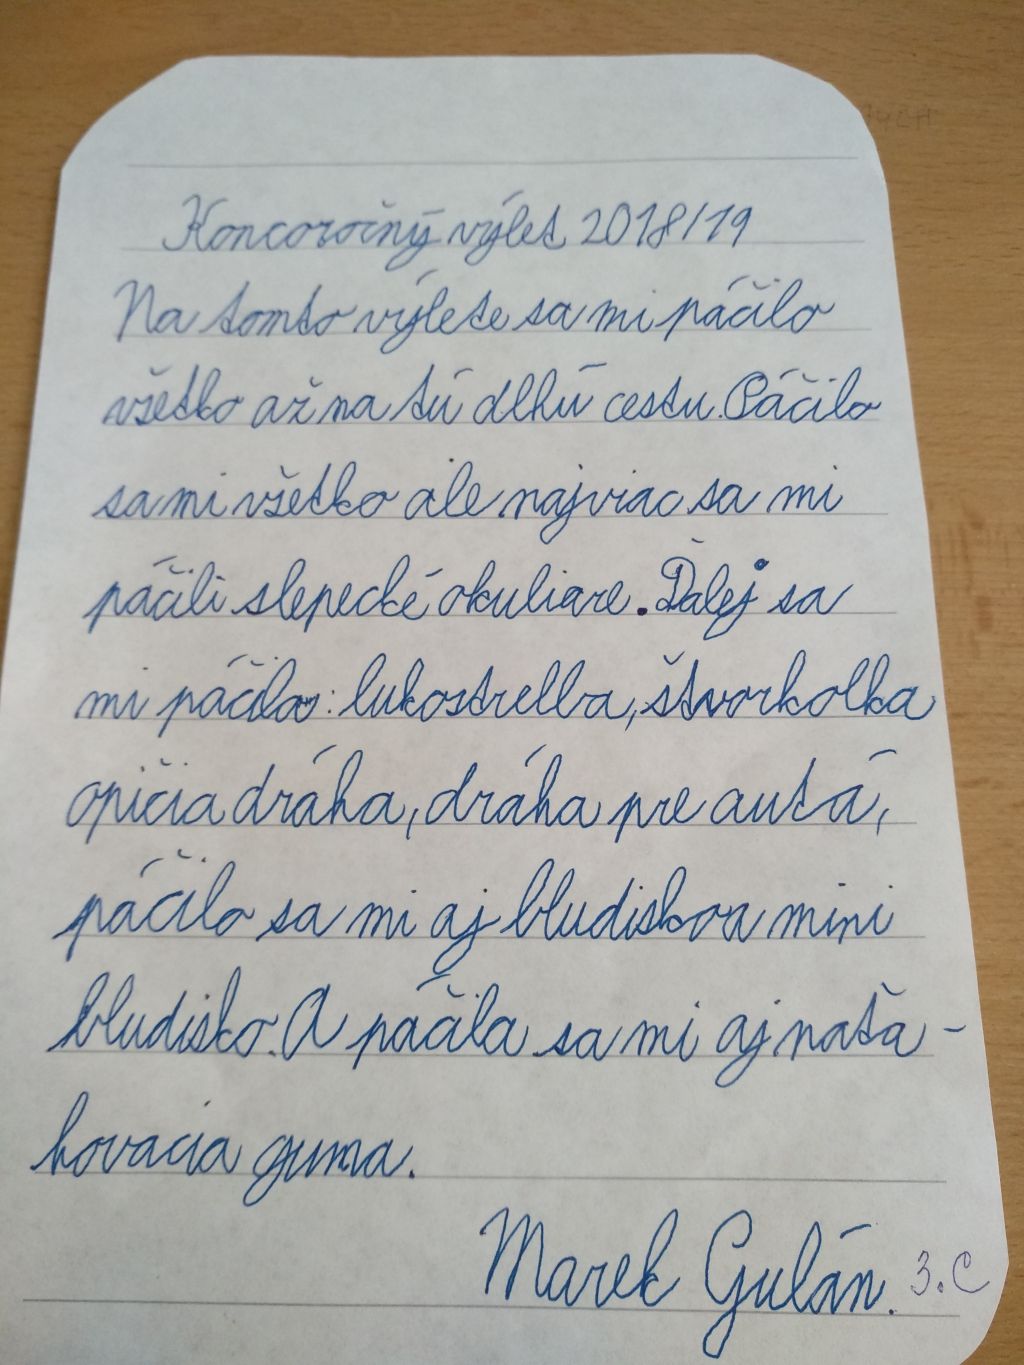 Koncoročný výlet 2018/19
Na tomto výlete sa mi páčilo
všetko až na tú dlhú cestu. Páčilo
sa mi všetko ale najviac sa mi
páčili slepecké okuliare. Ďalej sa
mi páčila: lukostrelba, štvorkolka
opičia dráha, dráha pre autá,
páčilo sa mi aj bludisko a mini
bludisko. A páčila sa mi aj naťa-
hovacia guma.
Marek Gulán. 3.C